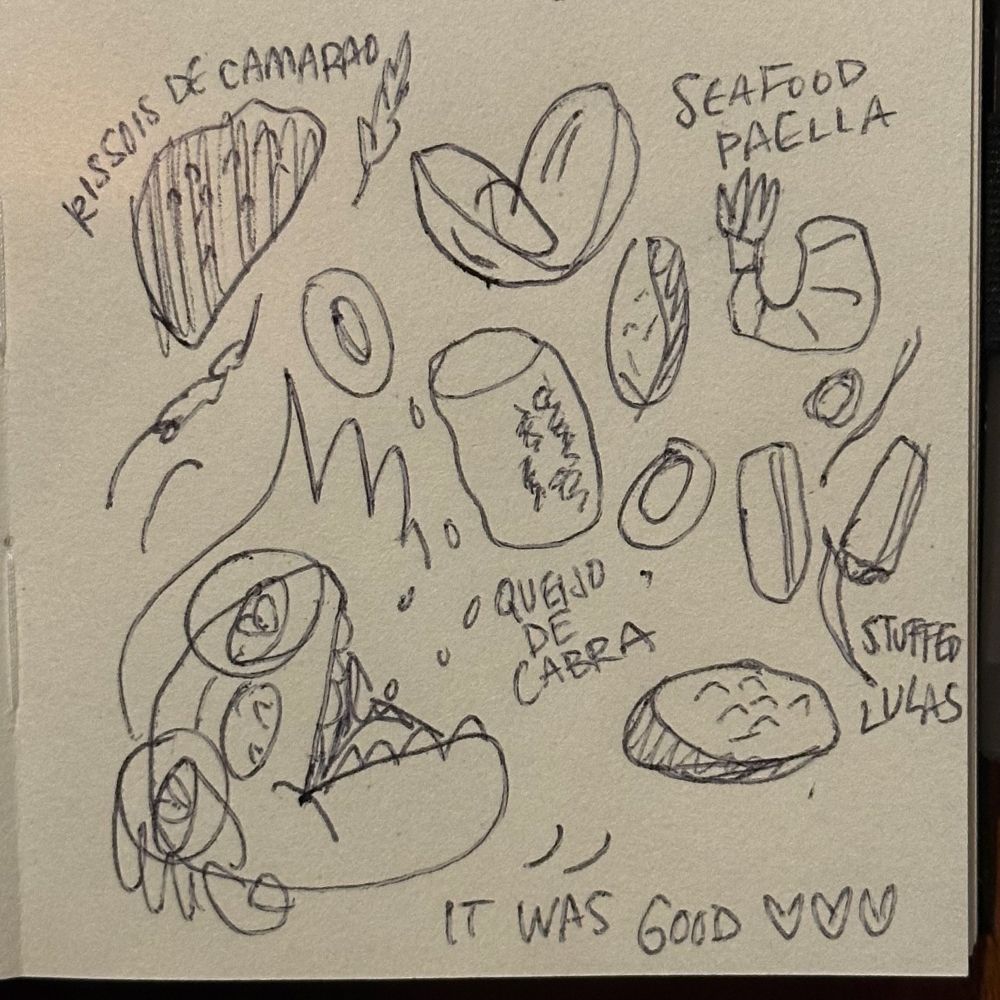 RISSOIS DE CAMARAO
SEAFOOD
PAELLA
QUEIJO
DE
CABRA
STUFFED
LULAS
IT WAS GOOD ♡♡♡